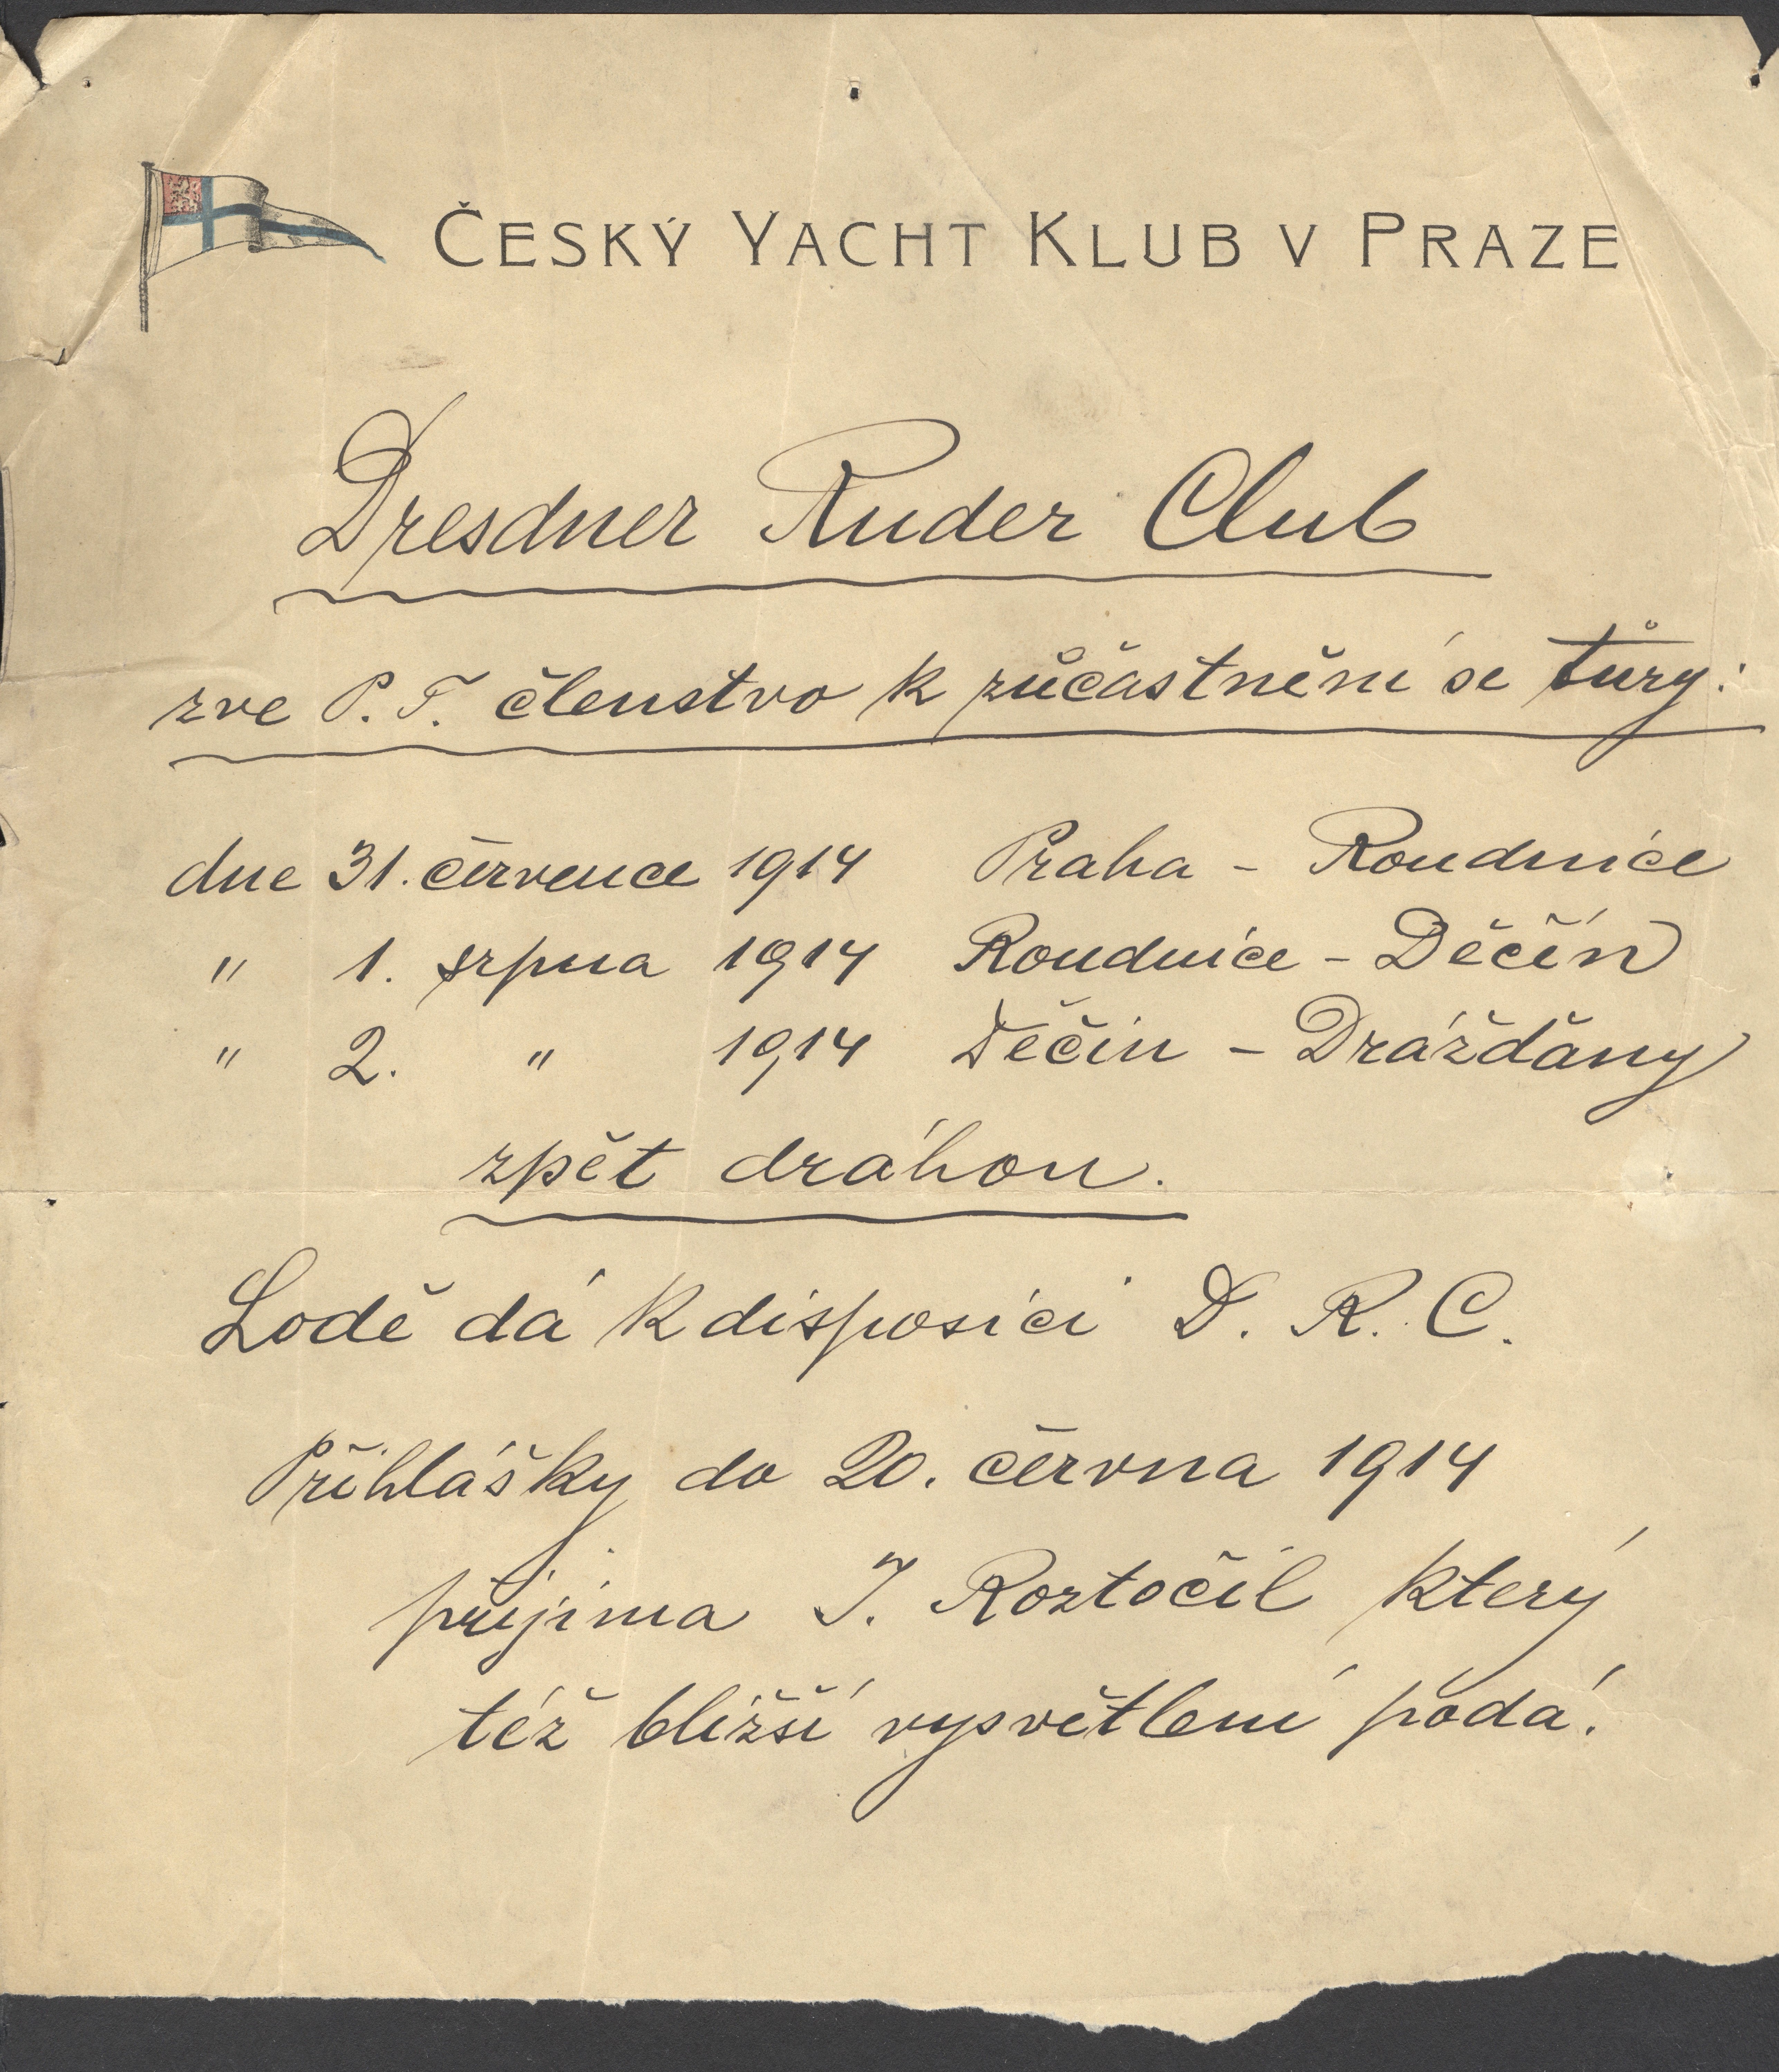 ČESKÝ YACHT KLUB V PRAZE
Dresdner Ruder Club
zve P. T. členstvo k zůčastnění se tůry:
dne 31. července 1914 Praha - Roudnice
" 1. srpna 1914 Roudnice - Děčín
" 2. " 1914 Děčín - Drážďany
zpět dráhou.
Lodě dá k disposici D. R. C.
Přihlášky do 20. června 1914
přijímá J. Roztočil který
též bližší vysvětlení podá.